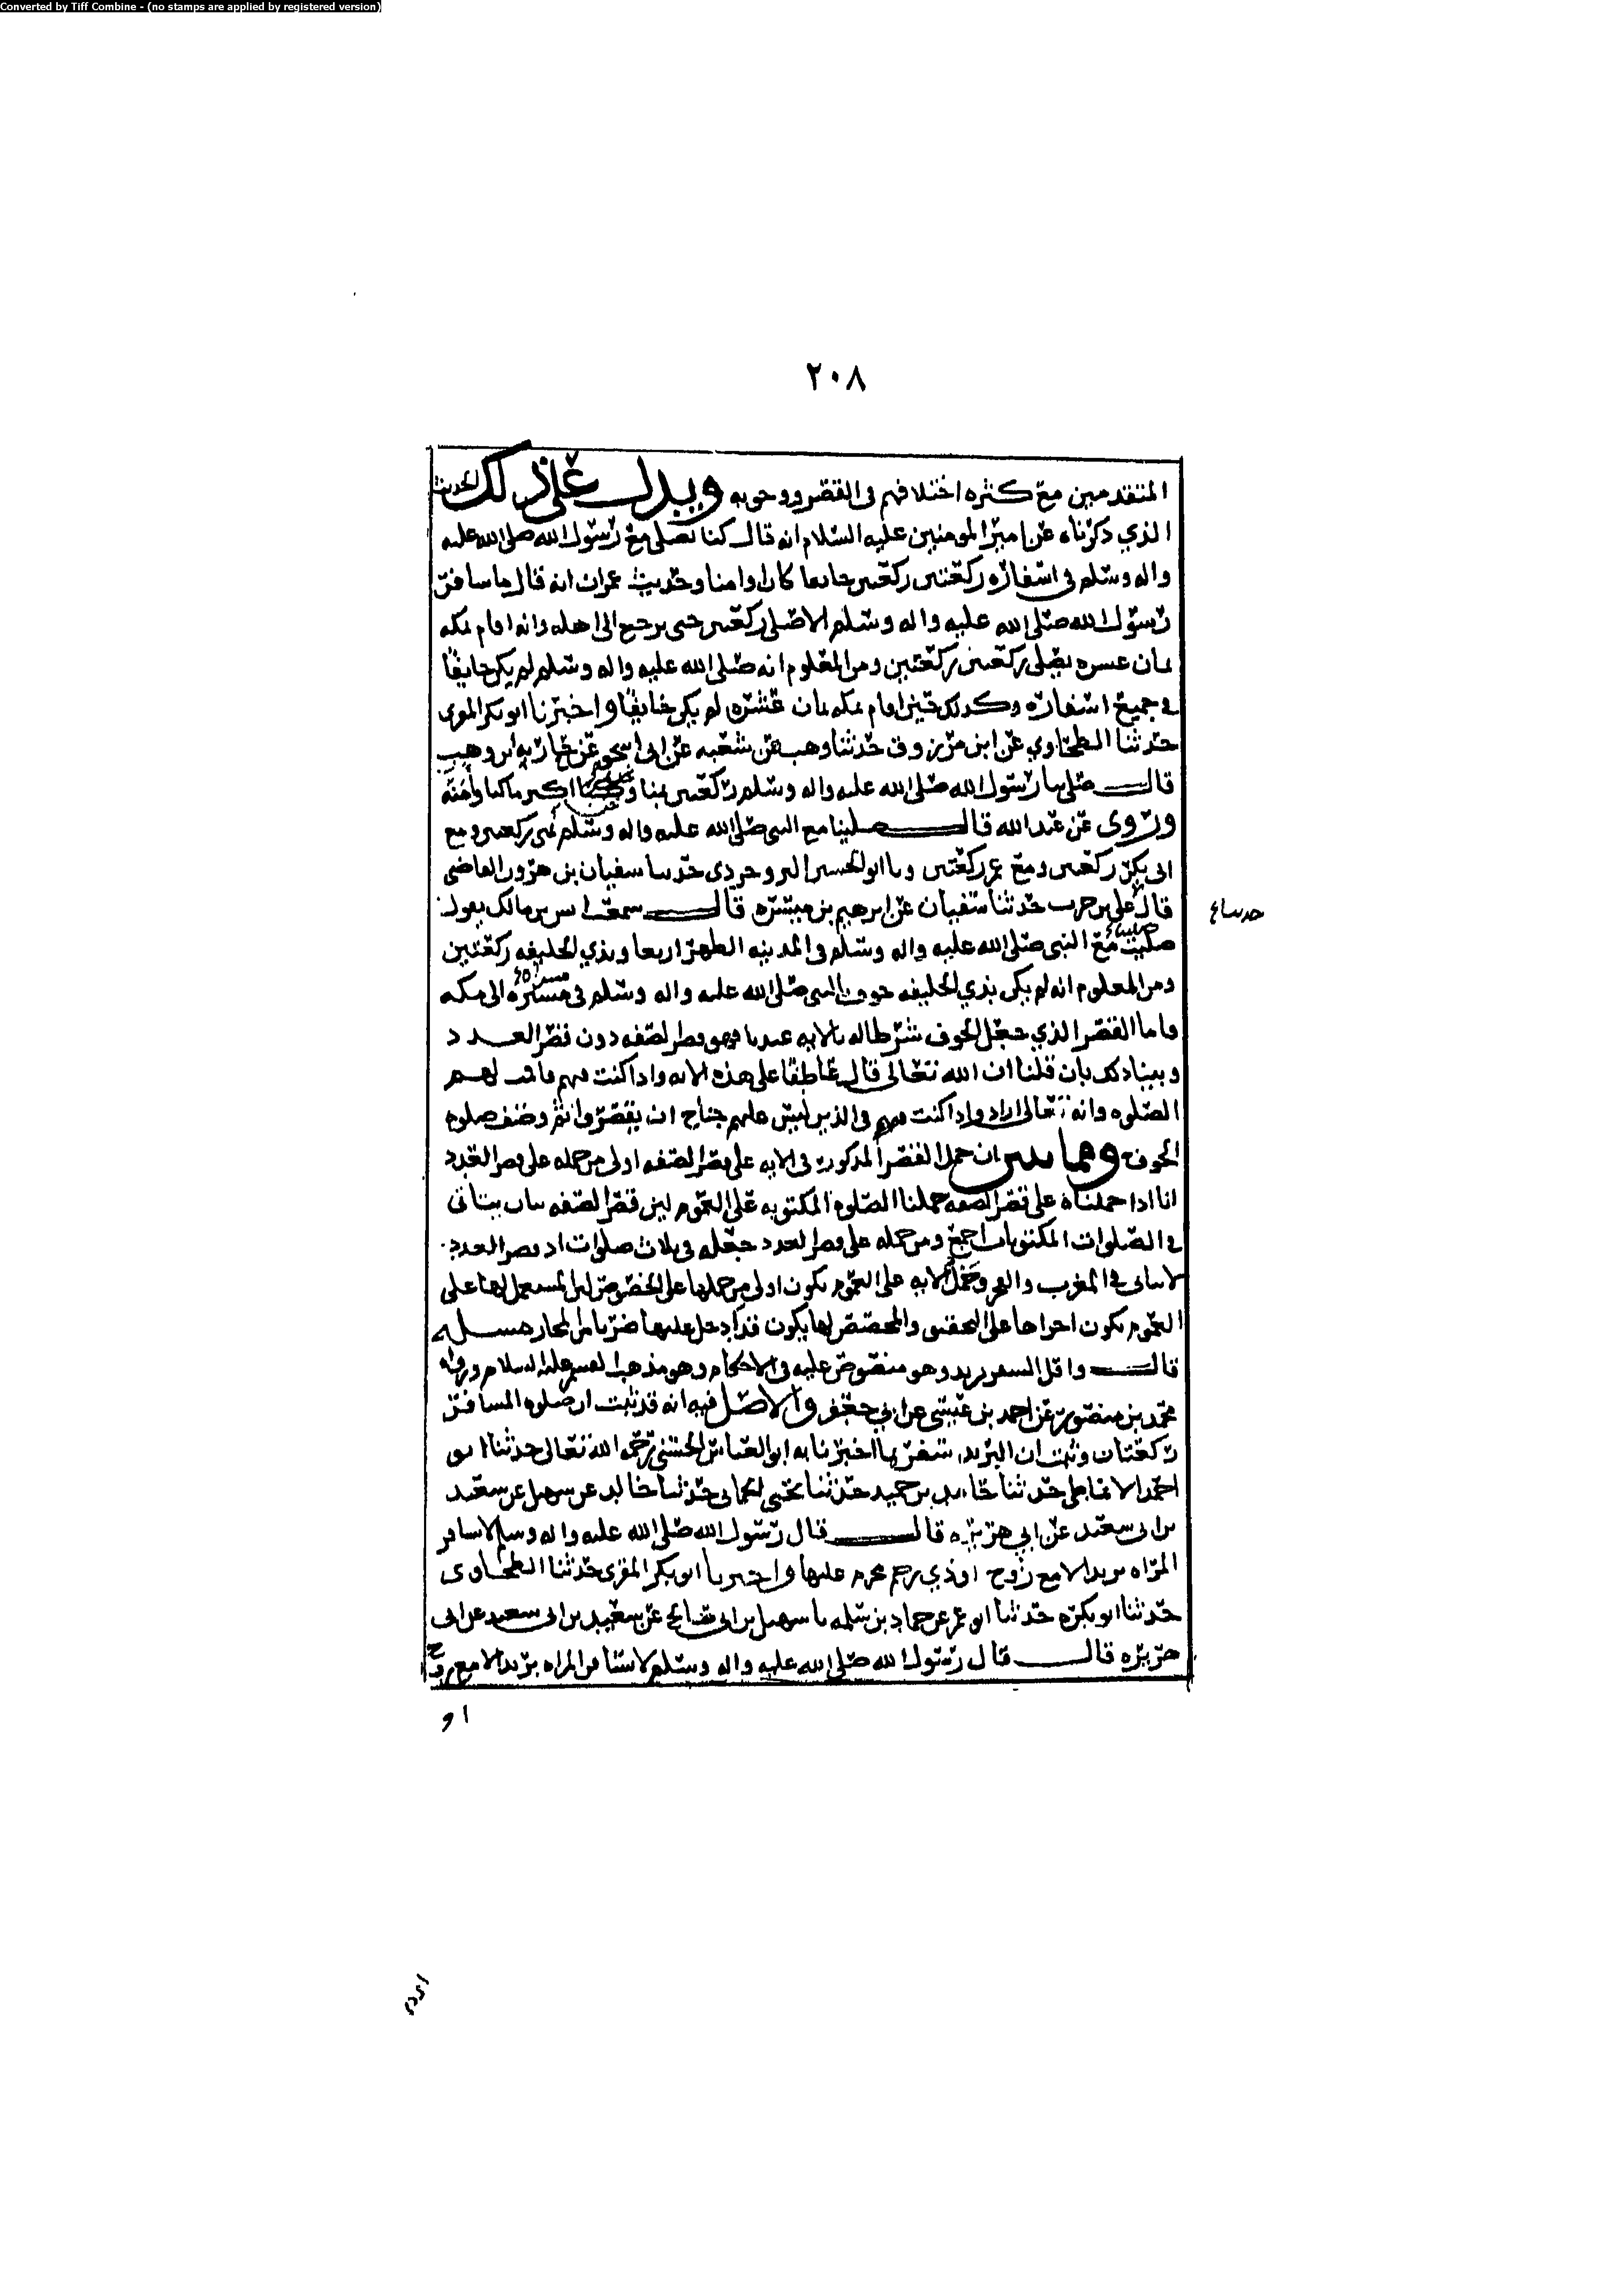 Converted by Tiff Combine - (no stamps are applied by registered version)
٢٠٨
المتقدمين مع كثره اختلافهم فى القصر ووجوبه ويدل على ذلك الحديث
الذي ذكرناه عن امير المومنين عليه السلام انه قال كنا نصلى مع رسول الله صلى الله عليه
واله وسلم فى اسفاره ركعتين ركعتين خايفا كان او امنا وحديث عمران انه قال ما سافر
رسول الله صلى الله عليه واله وسلم الا صلى ركعتين حتى يرجع الى اهله وانه اقام بمكه
ثمان عشره يصلى ركعتين ركعتين ومن المعلوم انه صلى الله عليه واله وسلم لم يكن خايفا
في جميع اسفاره وكذلك حين اقام بمكه ثمان عشره لم يكن خايفا واخبرنا ابو بكر المقرى
حدثنا الطحاوي عن ابن مرزوق حدثنا وهب عن شعبه عن ابى اسحق عن حارثه ابن وهب
قال صلى بنا رسول الله صلى الله عليه واله وسلم ركعتين بمنا ونحن اكثر ما كنا وامنه
وروى عن عبد الله قال صلينا مع النبى صلى الله عليه واله وسلم بمنى ركعتين ومع
ابى بكر ركعتين ومع عمر ركعتين وبا ابو الحسين البروجردى حدثنا سفيان بن هرون القاضى
قال على بن حرب حدثنا سفيان عن ابرهيم بن ميسره قال سمعت انس بن مالك يقول
حدثنا ع
صليت مع النبى صلى الله عليه واله وسلم فى المدينه الظهر اربعا وبذي الحليفه ركعتين
ومن المعلوم انه لم يكن بذي الحليفه خوف بالنبى صلى الله عليه واله وسلم فى مسيره الى مكه
فاما القصر الذي جعل الخوف شرطا له بالايه عندنا فهو قصر الصفه دون قصر العدد
وبينا ذلك بان قلنا ان الله تعالى قال عاطفا على هذه الايه واذا كنت فيهم فاقمت لهم
الصلوه وانه تعالى اراد واذا كنت فيهم فى الذين ليس عليهم جناح ان يقصروا ثم وصف صلوه
الخوف ومما يبين ان حمل القصر المذكور فى الايه على قصر الصفه اولى من حمله على قصر العدد
انا اذا حملناه على قصر الصفه حملنا الصلوه المكتوبه على العموم لين قصر الصفه يتاتى
في الصلوات المكتوبات اجمع ومن حمله على قصر العدد جعله فى ثلاث صلوات اذ قصر العدد
لا يتاتى فى المغرب والفجر وحمل الايه على العموم يكون اولى من حملها على الخصوص لان المستعمل لها على
العموم يكون اجراها على التحقيق والمخصص لها يكون قد ادخل عليها ضربا من المجاز مسله
قال واقل السفر بريد وهو منصوص عليه فى الاحكام وهو مذهب القسم عليه السلام ورواه
محمد بن منصور عن احمد بن عيسى عن ابي جعفر والاصل فيه انه قد ثبت ان صلوه المسافر
ركعتان وثبت ان البريد سفر بما اخبرنا به ابو العباس الحسنى رحمه الله تعالى حدثنا ابو
احمد الانماطى حدثنا حامد بن حميد حدثنا يحيى الحمانى حدثنا خالد عن سهيل عن سعيد
بن ابى سعيد عن ابي هريره قال قال رسول الله صلى الله عليه واله وسلم لا تسافر
المراه بريدا الا مع زوج او ذي رحم محرم عليها واخبرنا ابو بكر المقرى حدثنا الطحاوى
حدثنا ابو بكره حدثنا ابو عمر عن حماد بن سلمه با سهيل بن ابى صالح عن سعيد بن ابى سعيد عن ابى
هريره قال قال رسول الله صلى الله عليه واله وسلم لا تسافر المراه بريدا الا مع زوج
او